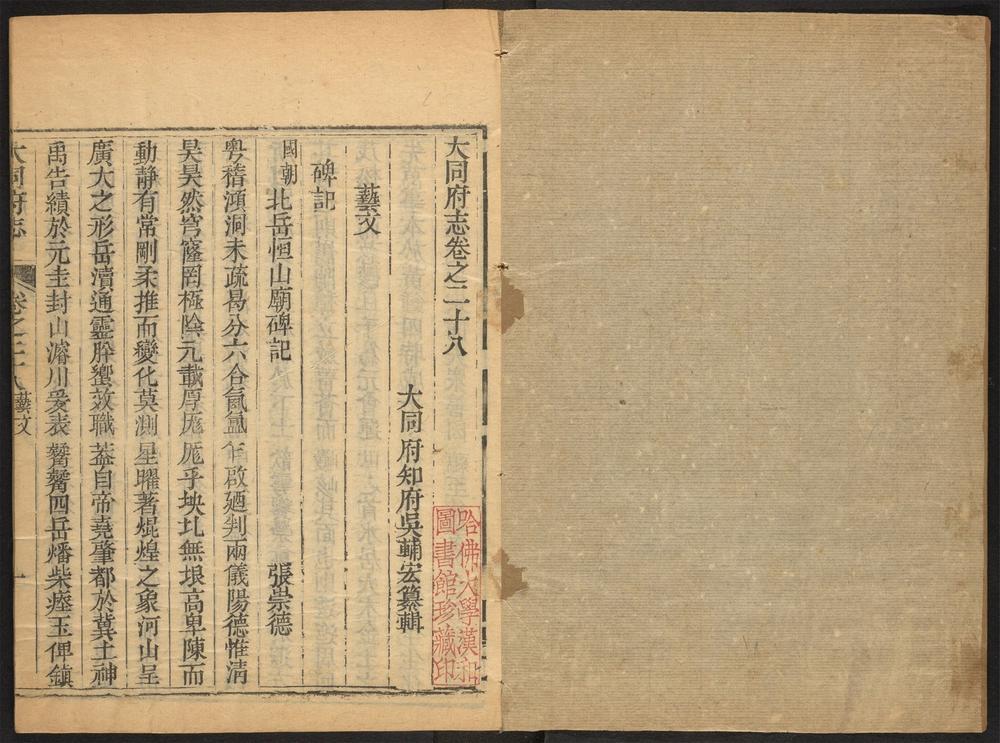 大同府志卷之二十八
大同府知府吳輔宏纂輯
藝文
碑記
國朝北岳恒山廟碑記 張崇德
粵稽澒洞未疏曷分六合氤氳乍啟廼判兩儀陽德惟清
昊昊然穹窿罔極陰元載厚厖厖乎坱圠無垠高卑陳而
動靜有常剛柔推而變化莫測星曜著焜煌之象河山呈
廣大之形岳瀆通靈肸蠁效職葢自帝堯肇都於冀土神
禹告績於元圭封山濬川爰表嶜嶜四岳燔柴瘞玉俾鎮
大同府志 卷之二十八藝文 一
哈佛大學漢和
圖書館珍藏印